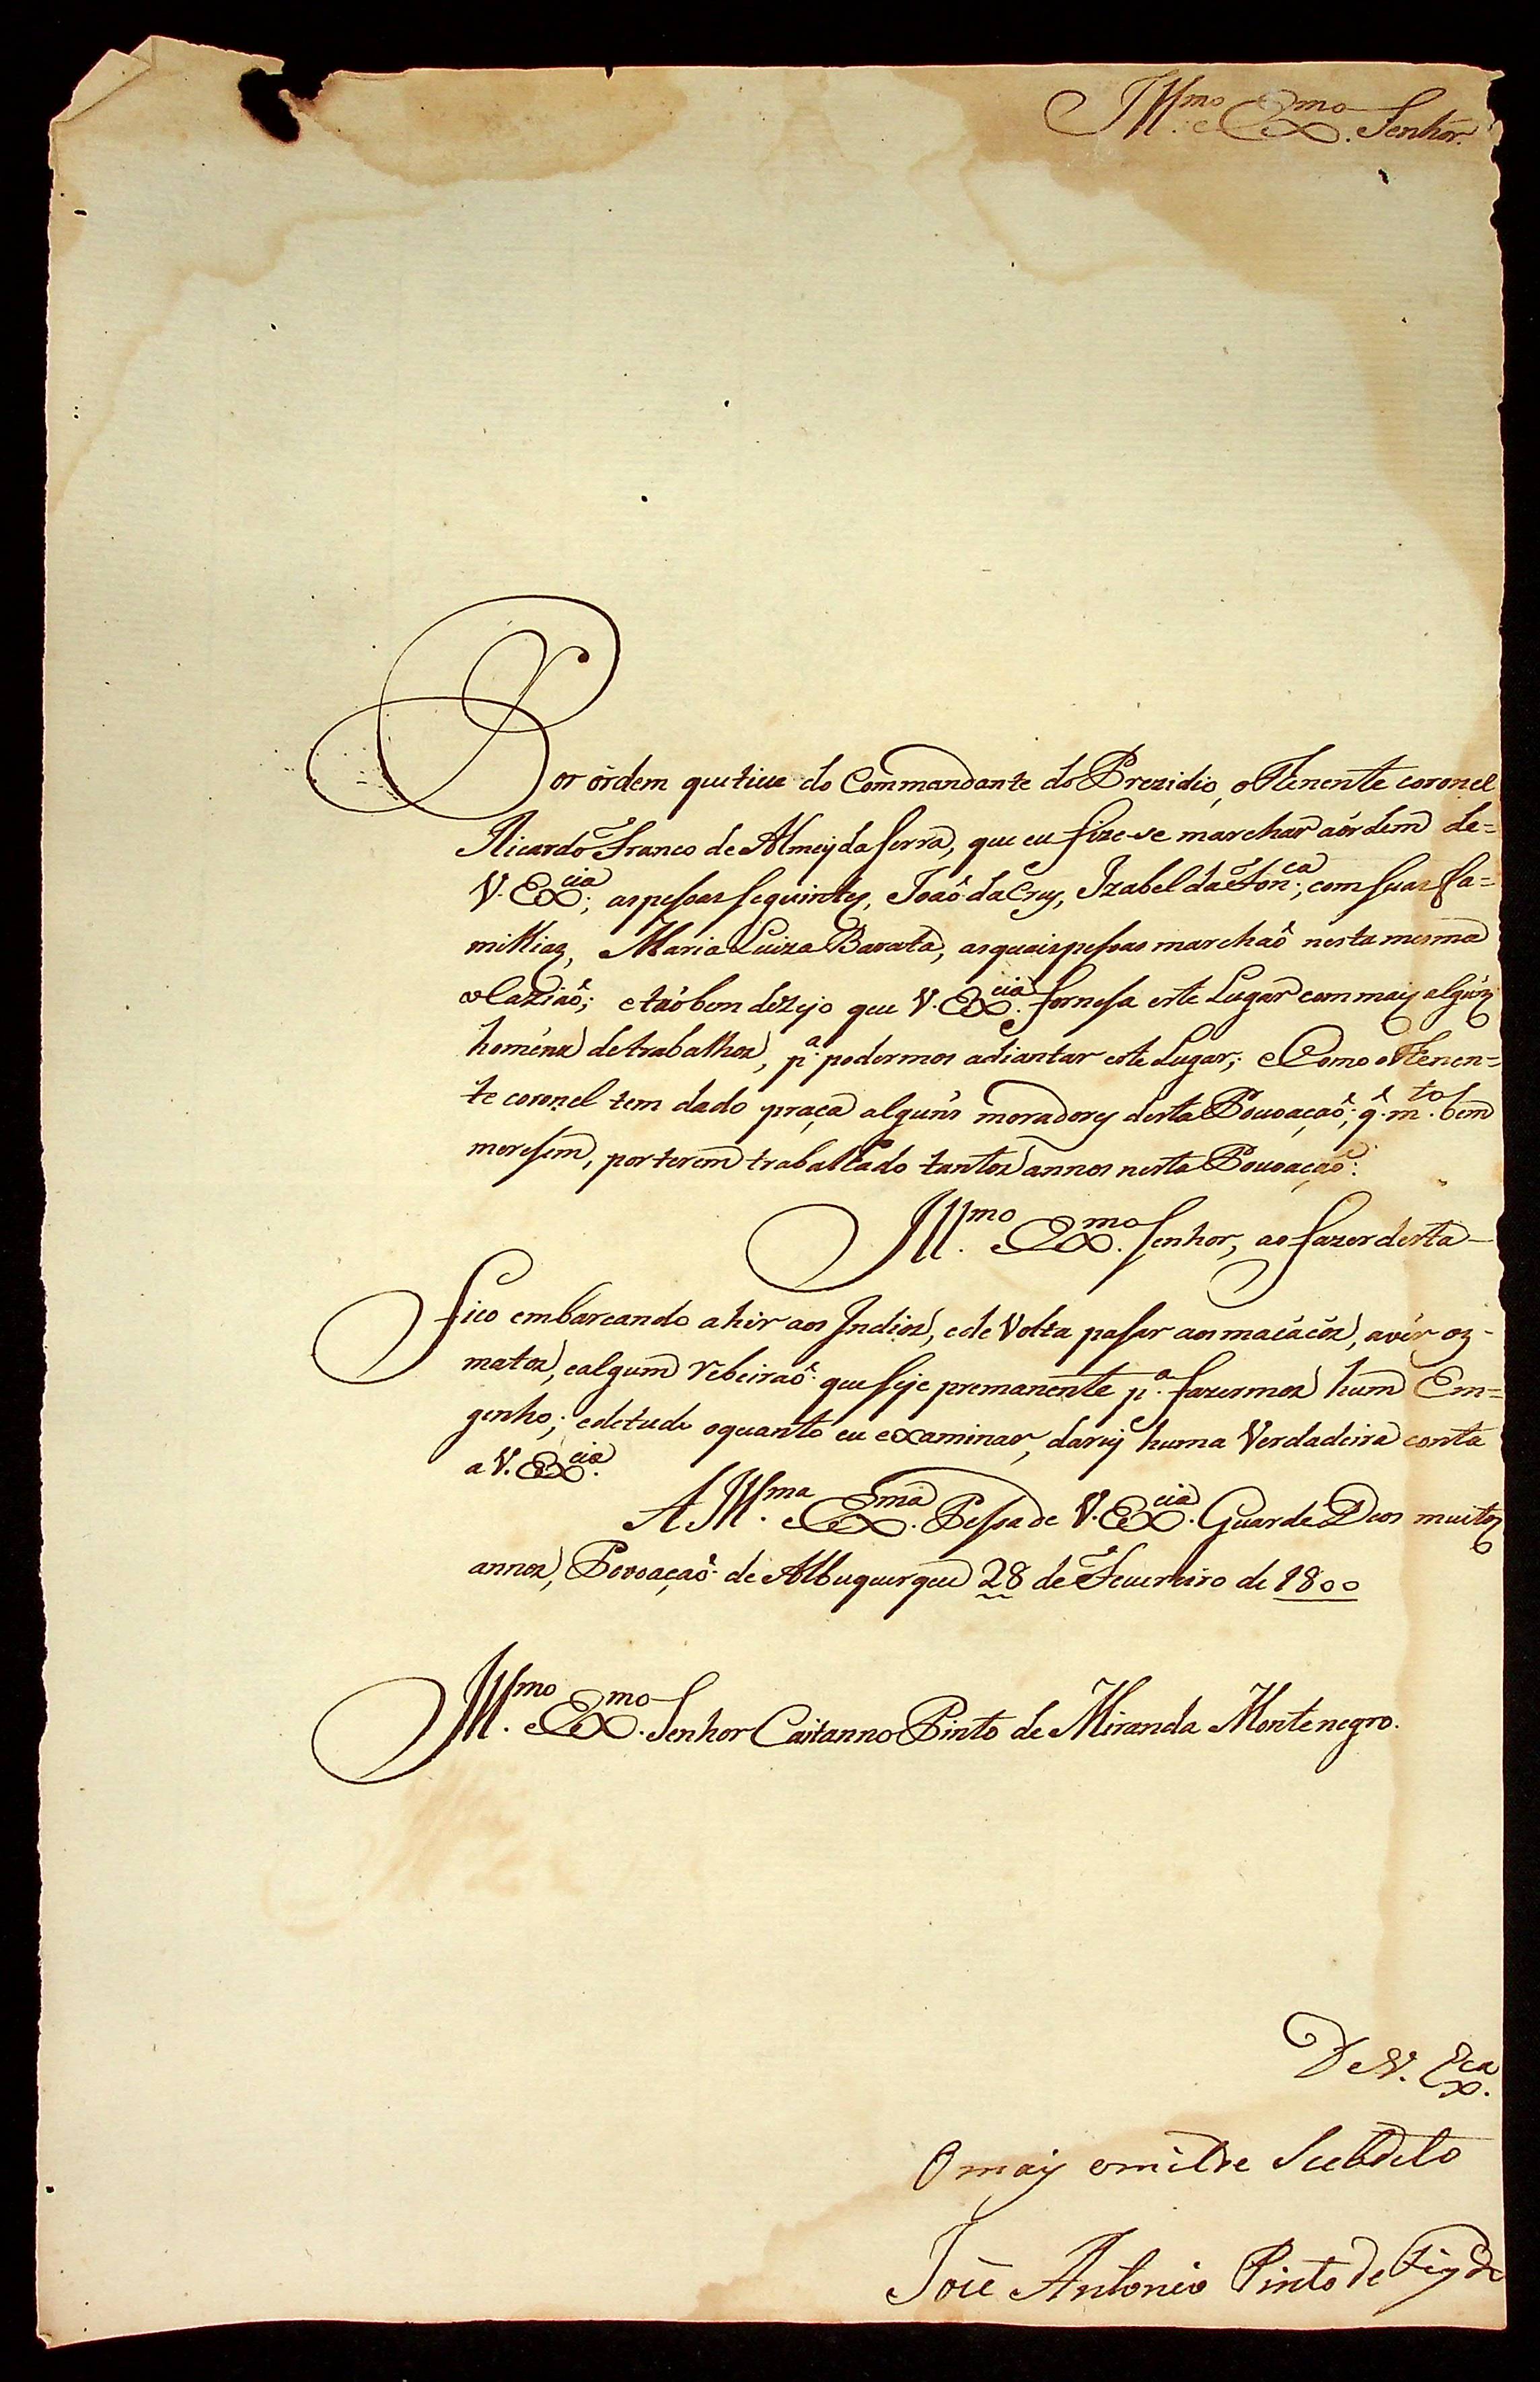 Ill.mo e Ex.mo Senhor.
Por órdem que tive do Commandante do Prezidio, o Tenente coronel
Ricardo Franco de Almeyda Serra, que eu fize-se marchar aórdem de=
V. Ex.cia; as pessoas seguintes, Joaô da Cruz, Izabel da Fon.ca; com suas fa=
millias, Maria Luiza Barata, as quais pessoas marchaô nesta mesma
ocaziaô; e taóbem dezejo que V. Ex.cia fornesa este Lugar com mays algúns
homéns de trabalhos, p.a podermos adiantar este Lugar; e Como o Tenen=
te coronel tem dado praça alguñs moradores desta Povoaçaô; q̂. m.to bem
meresem, por terem trabalhado tantos annos nesta Povoaçaô.
Ill.mo e Ex.mo Senhor, ao fazer desta
Fico embarcando a hir aos Indios, e de Volta pasar aos macácos, avér os
matos, e algum rebeiraô que seje premanente p.a fazermos hum Em=
genho; e de tudo o quanto eu examinar, darey huma Verdadeira conta
a V. Ex.cia.
A Ill.ma e Ex.ma Pessoa de V. Ex.cia Guarde Deos muitos
annos, Povoaçaô de Albuquerque 28 de Fevereiro de 1800
Ill.mo e Ex.mo Senhor Caitanno Pinto de Miranda Montenegro.
De V. Ex.ca
O mays omilde Subdito
José Antonio Pinto de Figdo